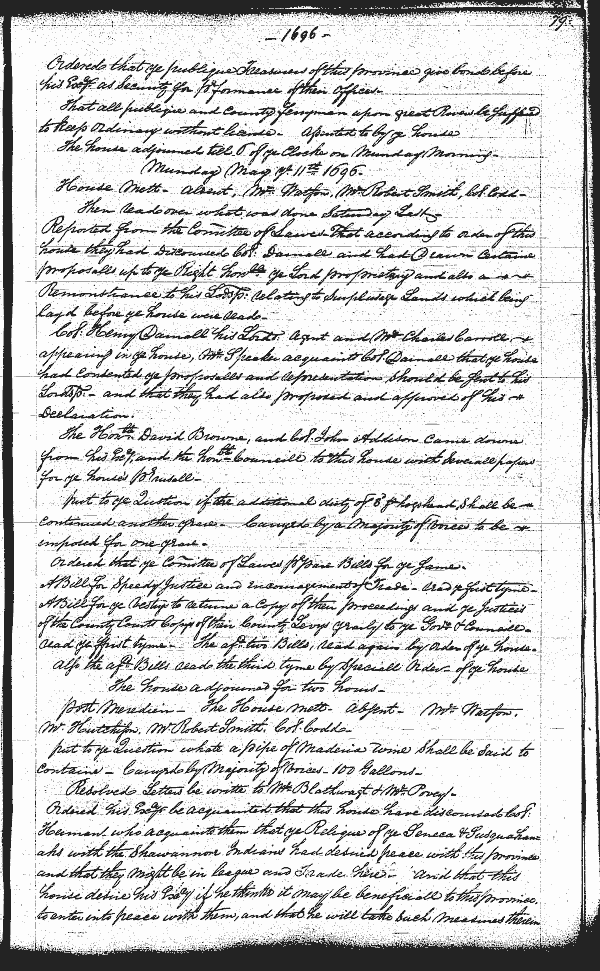 79.
- 1696 -
Ordered that ye publique Treasurers of this province give bond before
his Exy. as Security for pformance of their Offices.
That all publique and County ferryman upon great Rivers be Suffered
to keep Ordinary without licence - Assented to by ye house
The house adjourned till 8 of ye Clocke on Munday Morning -
Munday May ye 11th 1696.
House Mett - Absent, Mr. Watson, Mr. Robert Smith, Col. Codd -
Then read over what was done Saturday Last -
Reported from the Comittee of Lawes - That according to order of this
house they had discoursed Col. Darnall and had Drawn Certaine
proposalls up to ye Right honble ye Lord proprietary and also a
Remonstrance to his Lordsp. relating to Surplusage Lands which being
layd before ye house were read -
Col. Henry Darnall his Lordsp. Agent and Mr Charles Carroll
appearing in ye house, Mr. Speaker acquaints Col. Darnall that ye house
had Consented ye proposalls and representation should be sent to his
Lordsp. - and that they had also proposed and approved of his
Declaration.
The Honble David Browne, and Col. John Addison Came downe
from his Exy, and the honble Councill to this house with Severall papers
for ye house perusall -
put to ye Question if the additional duty of 3d p hogshead Shall be
continued another yeare - Carryed by a Majority of Voices to be
imposed for one yeare -
Ordered that ye Comittee of Lawes ppare Bills for ye Same.
A Bill for Speedy Justice and encouragement of Trade - read ye first tyme -
A Bill for ye Vestry to returne a Copy of their proceedings and ye Justices
of the County Courts Copy of their County Levys yearly to ye Govr & Councill -
read ye first tyme - The afd. two Bills, read again by order of ye house -
Also the afd. Bills read the third tyme by Speciall Order of ye house
The house adjourned for two hours -
post Meredien - The House mett - Absent - Mr. Watson,
Mr Hutchison, Mr Robert Smith, Col. Codd -
put to ye Question whate a pipe of Madeira wine Shall be Said to
containe - Carryed by Majority of Voices - 100 Gallons -
Resolved Letters be wrote to Mr. Blathwayt & Mr. Povey -
Ordered his Exy. be acquainted that this house have discoursed Col.
Herman who acquaints them that ye Relique of ye Seneca & Susquahan
ahs with the Shawannoe Indians had desired peace with this province
and that they might be in league and Trade here - And that this
house desire his Exy if he thinke it may be beneficiall to this province
to enter into peace with them, and that he will take Such measures therein